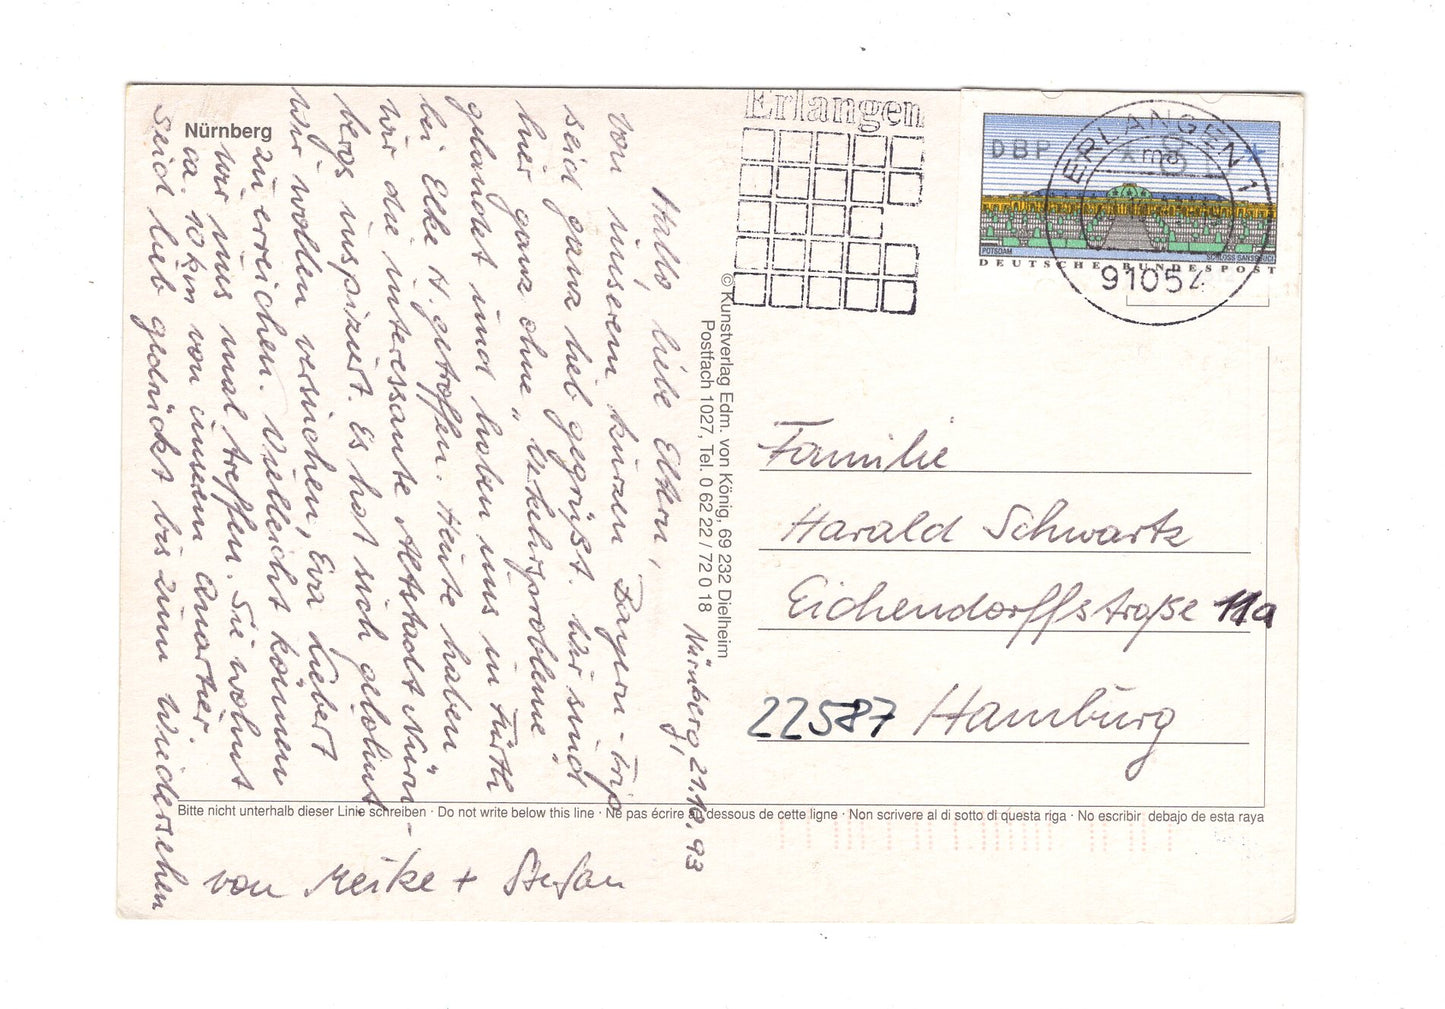 Nürnberg
Nürnberg, 21.10.93
Hallo, liebe Eltern,
von unserem kurzen Bayern-Trip
seid ganz lieb gegrüßt. Wir sind
hier ganz ohne „Verkehrsprobleme"
gelandet und haben uns in Fürth
bei Elke H. getroffen. Heute haben
wir die interessante Altstadt Nürn-
bergs inspiziert. Es hat sich gelohnt
Wir wollen versuchen, Eva Liebert
zu erreichen. Vielleicht können
wir uns mal treffen. Sie wohnt
ca. 10 km von unserm Quartier
Seid lieb gedrückt bis zum Wiedersehen
von Meike + Stefan
© Kunstverlag Edm. von König, 69 232 Dielheim
Postfach 1027, Tel. 0 62 22 / 72 0 18
Erlangen
DBP
POTSDAM
SCHLOSS SANSSOUCI
DEUTSCHE BUNDESPOST
ERLANGEN 1
91054
Familie
Harald Schwartz
Eichendorffstraße 11a
22587 Hamburg
Bitte nicht unterhalb dieser Linie schreiben · Do not write below this line · Ne pas écrire au dessous de cette ligne · Non scrivere al di sotto di questa riga · No escribir debajo de esta raya